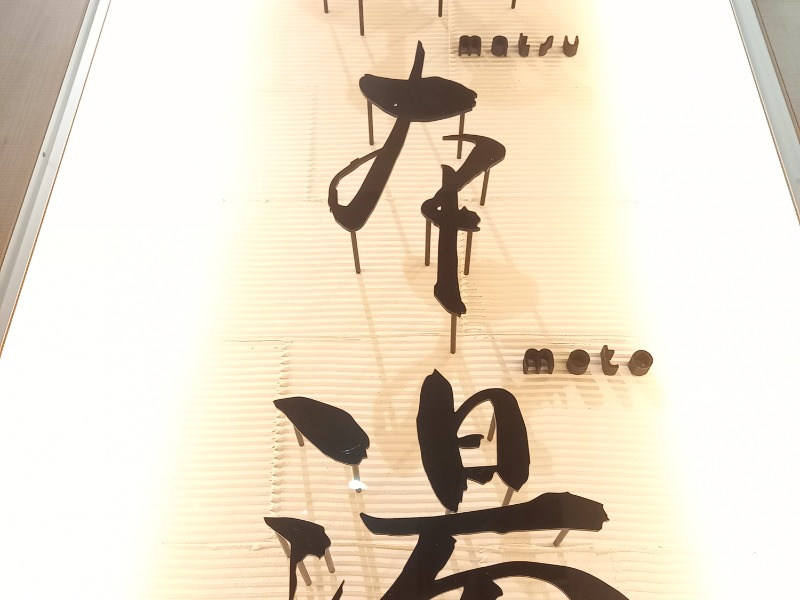 matsu
本
moto
湯